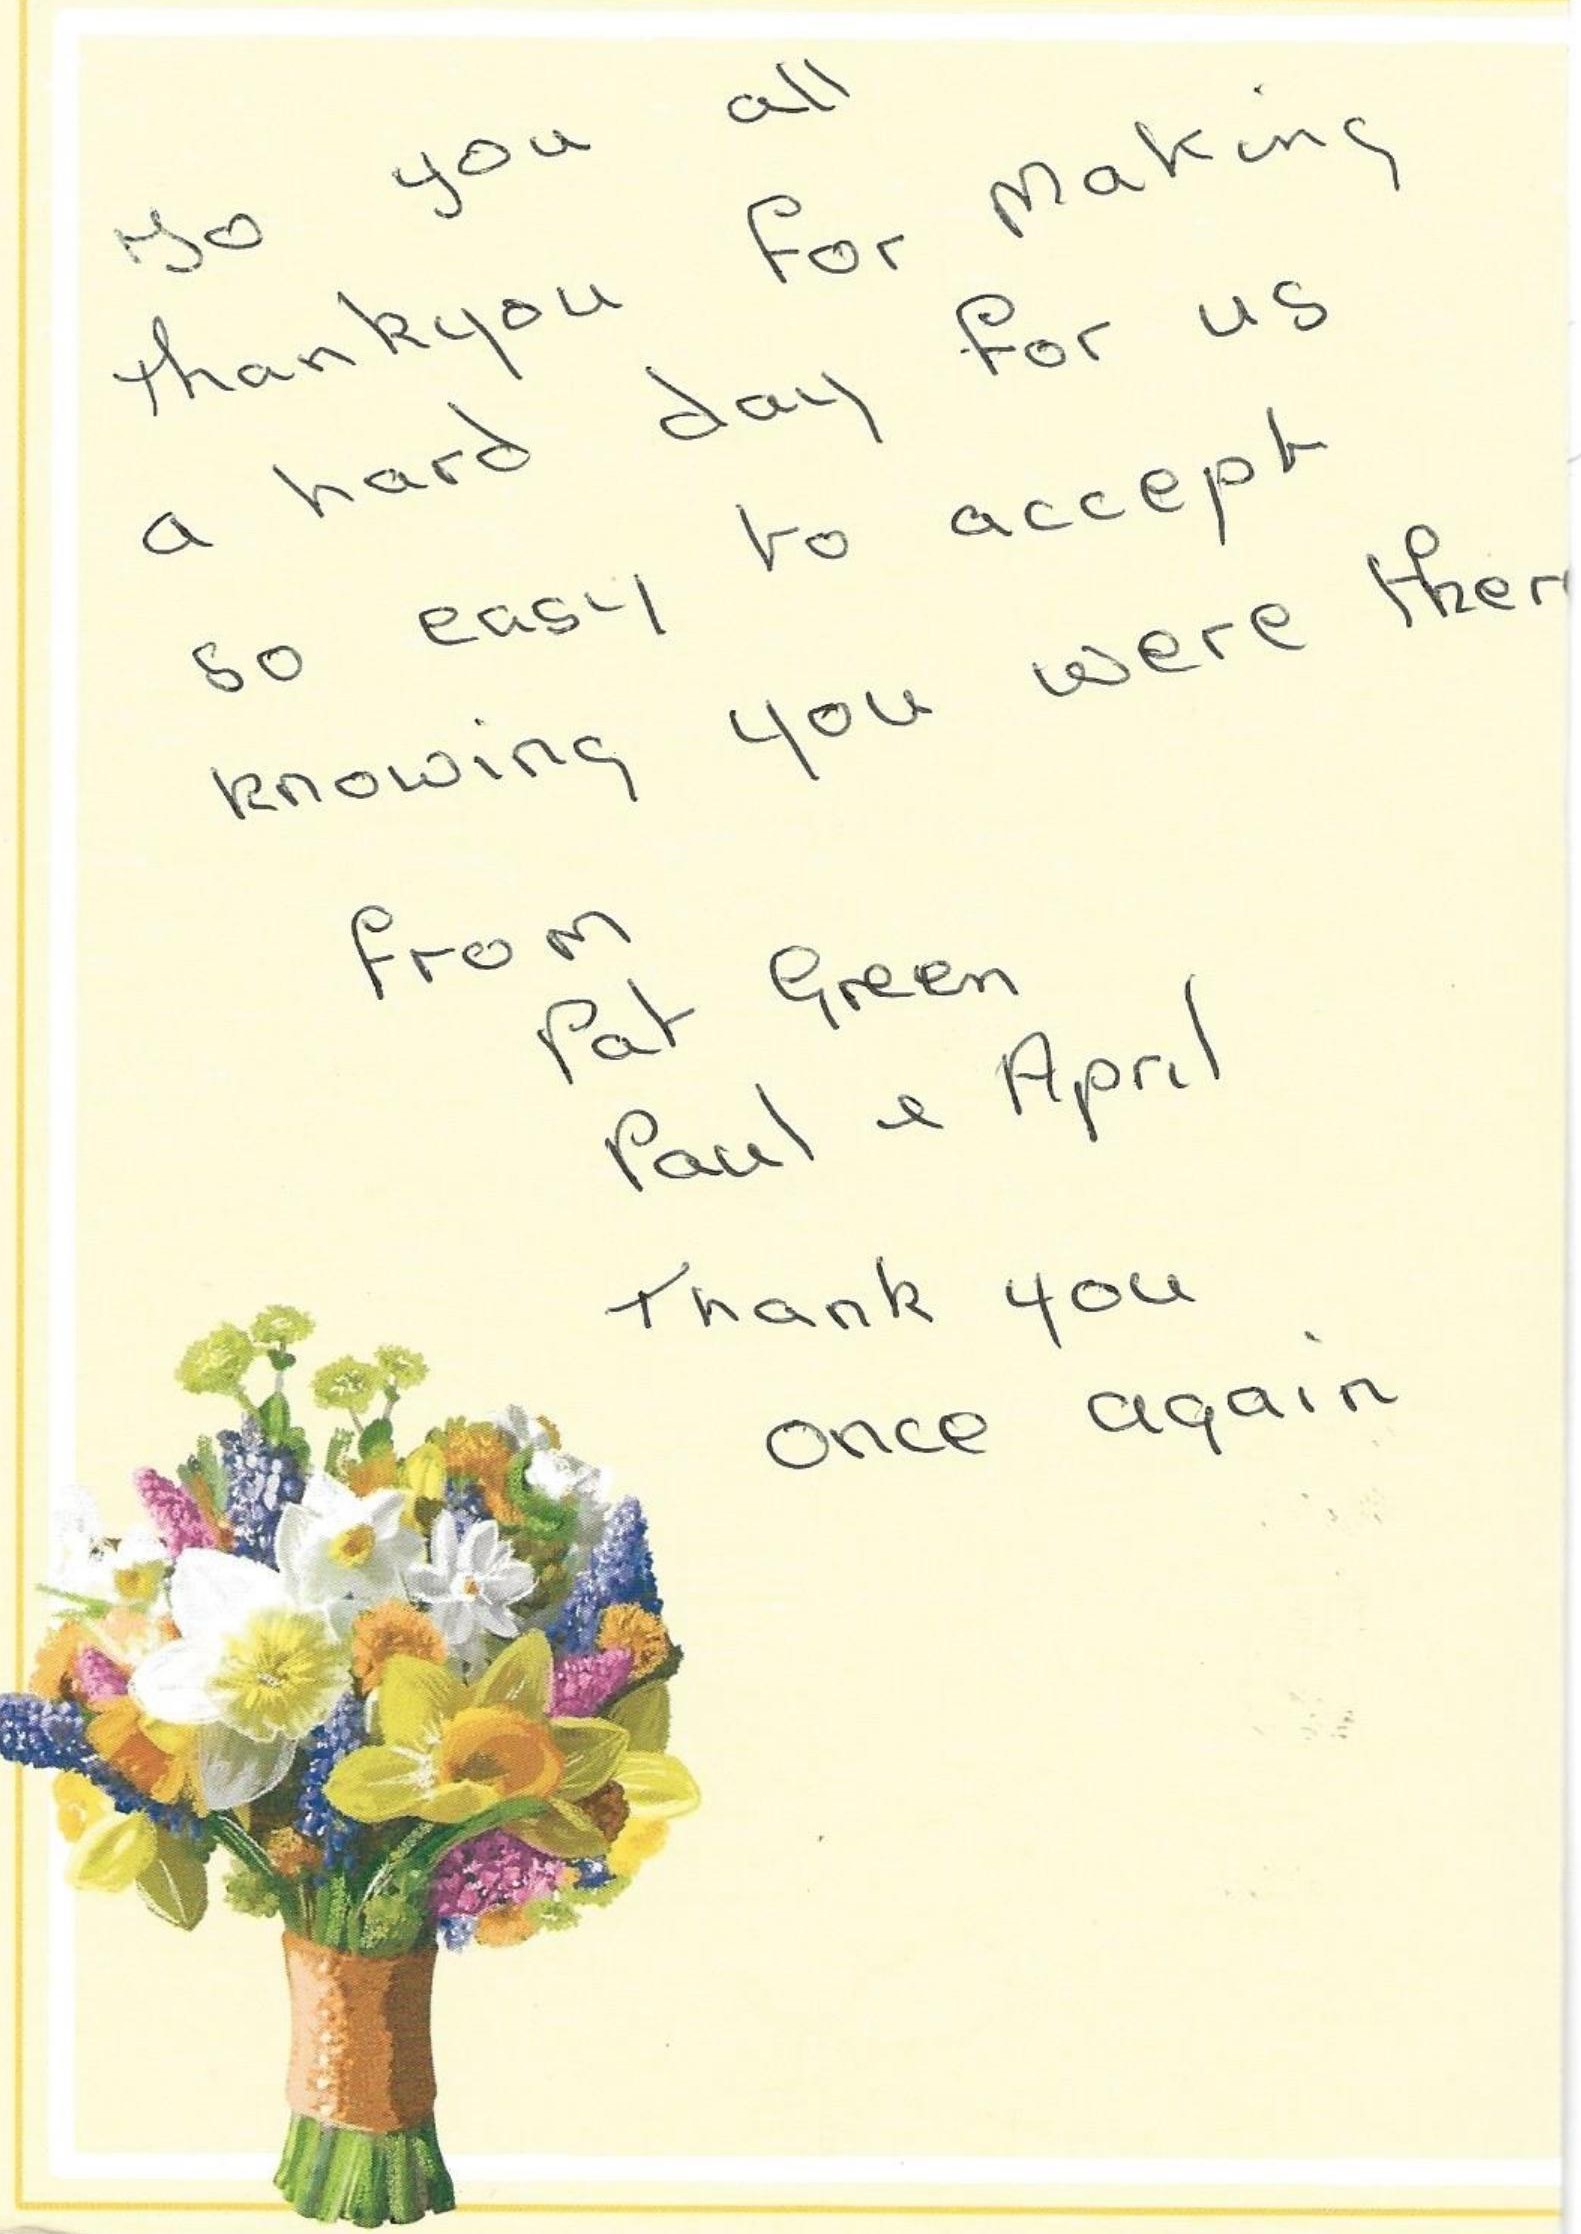 To you all
thankyou for making
a hard day for us
so easy to accept
knowing you were ther
from
Pat Green
Paul & April
Thank you
once again